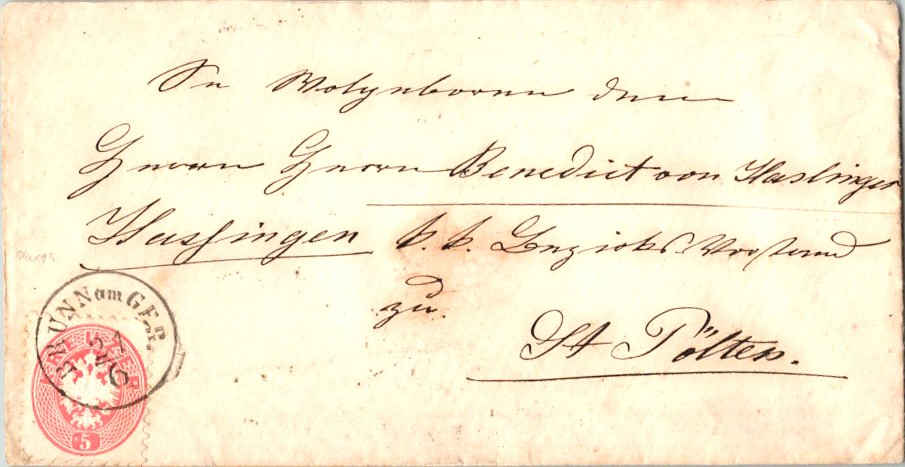 Sr Wolgeboren dem
Herrn Herrn Benedict von Haslinger
Hassingen k. k. Bezirks-Vorstand
zu
St Pölten.
BRUNN am GEB.
27/6
KREUZER
5